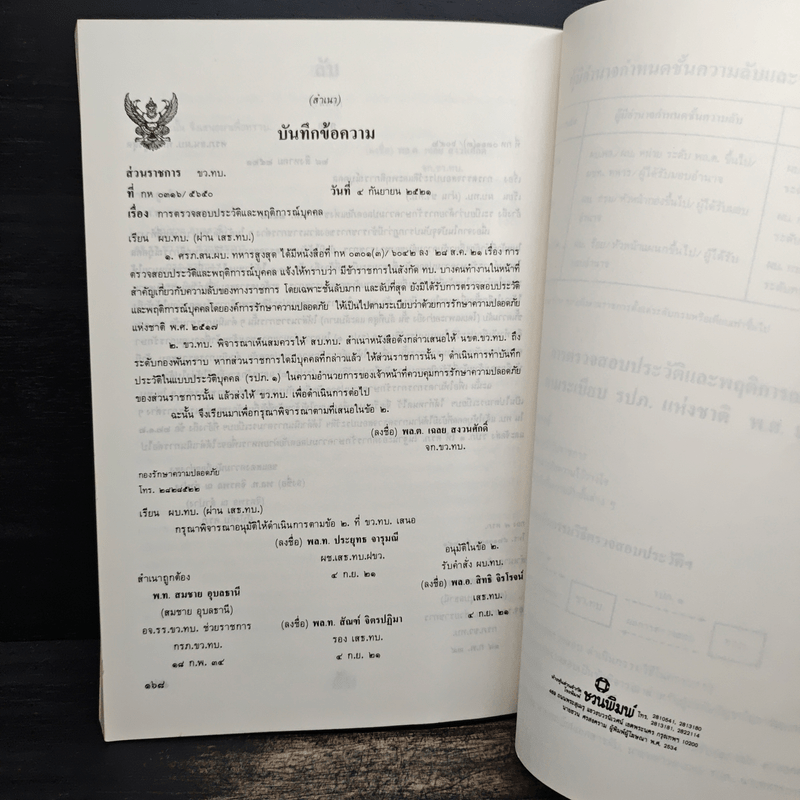 (สำเนา)
บันทึกข้อความ
ส่วนราชการ ขว.ทบ.
ที่ กห ๐๓๑๖/๕๖๕๐ วันที่ ๔ กันยายน ๒๕๒๑
เรื่อง การตรวจสอบประวัติและพฤติการณ์บุคคล
เรียน ผบ.ทบ. (ผ่าน เสธ.ทบ.)
๑. ศรภ.สน.ผบ. ทหารสูงสุด ได้มีหนังสือที่ กห ๐๓๐๑(๓)/๖๐๔๒ ลง ๒๔ ส.ค. ๒๑ เรื่อง การ
ตรวจสอบประวัติและพฤติการณ์บุคคล แจ้งให้ทราบว่า มีข้าราชการในสังกัด ทบ. บางคนทำงานในหน้าที่
สำคัญเกี่ยวกับความลับของทางราชการ โดยเฉพาะชั้นลับมาก และลับที่สุด ยังมิได้รับการตรวจสอบประวัติ
และพฤติการณ์บุคคลโดยองค์การรักษาความปลอดภัย ให้เป็นไปตามระเบียบว่าด้วยการรักษาความปลอดภัย
แห่งชาติ พ.ศ. ๒๕๑๗
๒. ขว.ทบ. พิจารณาเห็นสมควรให้ สบ.ทบ. สำเนาหนังสือดังกล่าวเสนอให้ นขต.ขว.ทบ. ถึง
ระดับกองพันทราบ หากส่วนราชการใดมีบุคคลที่กล่าวแล้ว ให้ส่วนราชการนั้น ๆ ดำเนินการทำบันทึก
ประวัติในแบบประวัติบุคคล (รปภ. ๑) ในความอำนวยการของเจ้าหน้าที่ควบคุมการรักษาความปลอดภัย
ของส่วนราชการนั้น แล้วส่งให้ ขว.ทบ. เพื่อดำเนินการต่อไป
ฉะนั้น จึงเรียนมาเพื่อกรุณาพิจารณาตามที่เสนอในข้อ ๒.
(ลงชื่อ) พล.ต. เฉลย สงวนศักดิ์
จก.ขว.ทบ.
กองรักษาความปลอดภัย
โทร. ๒๘๒๘๕๒๒
เรียน ผบ.ทบ. (ผ่าน เสธ.ทบ.)
กรุณาพิจารณาอนุมัติให้ดำเนินการตามข้อ ๒. ที่ ขว.ทบ. เสนอ
(ลงชื่อ) พล.ท. ประยุทธ จารุมณี
ผช.เสธ.ทบ.ฝขว.
๔ ก.ย. ๒๑
อนุมัติในข้อ ๒.
รับคำสั่ง ผบ.ทบ.
(ลงชื่อ) พล.อ. สิทธิ จิรโรจน์
เสธ.ทบ.
๔ ก.ย. ๒๑
สำเนาถูกต้อง
พ.ท. สมชาย อุบลธานี
(สมชาย อุบลธานี)
อจ.รร.ขว.ทบ. ช่วยราชการ
กรภ.ขว.ทบ.
๑๘ ก.พ. ๓๔
(ลงชื่อ) พล.ท. สัณฑ์ จิตรปฏิมา
รอง เสธ.ทบ.
๔ ก.ย. ๒๑
๑๖๘
ห้างหุ้นส่วนจำกัด
โรงพิมพ์ ชวนพิมพ์ โทร. 2810541, 2813180
2813181, 2823114
486 ถนนพระสุเมรุ แขวงบวรนิเวศน์ เขตพระนคร กรุงเทพฯ 10200
นายชวน ศรสงคราม ผู้พิมพ์ผู้โฆษณา พ.ศ. 2534